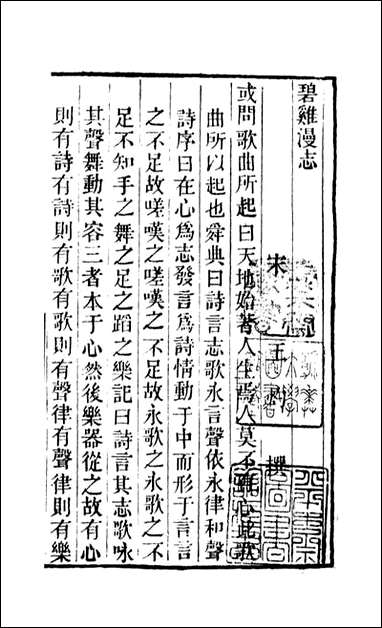 碧雞漫志
宋 王灼 撰
或問歌曲所起曰天地始著人生焉人莫不有心此歌
曲所以起也舜典曰詩言志歌永言聲依永律和聲
詩序曰在心為志發言為詩情動于中而形于言言
之不足故嗟嘆之嗟嘆之不足故永歌之永歌之不
足不知手之舞之足之蹈之樂記曰詩言其志歌咏
其聲舞動其容三者本于心然後樂器從之故有心
則有詩有詩則有歌有歌則有聲律有聲律則有樂